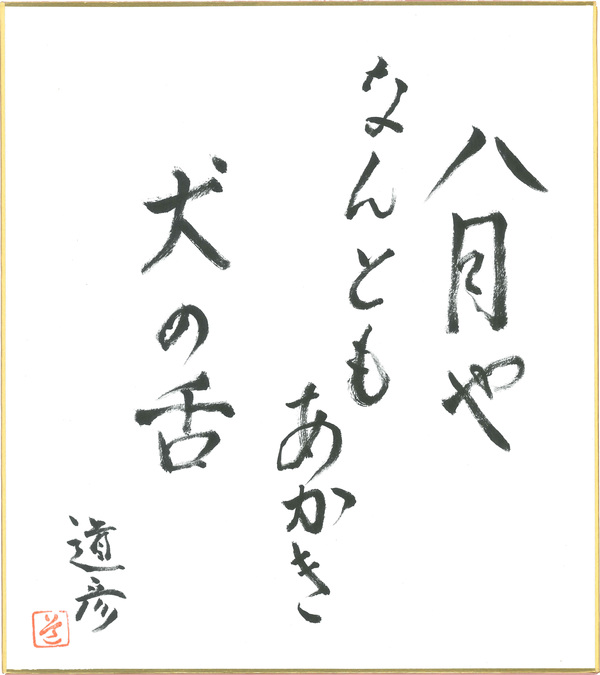 八月や
なんとも
あかき
犬の舌
道彦